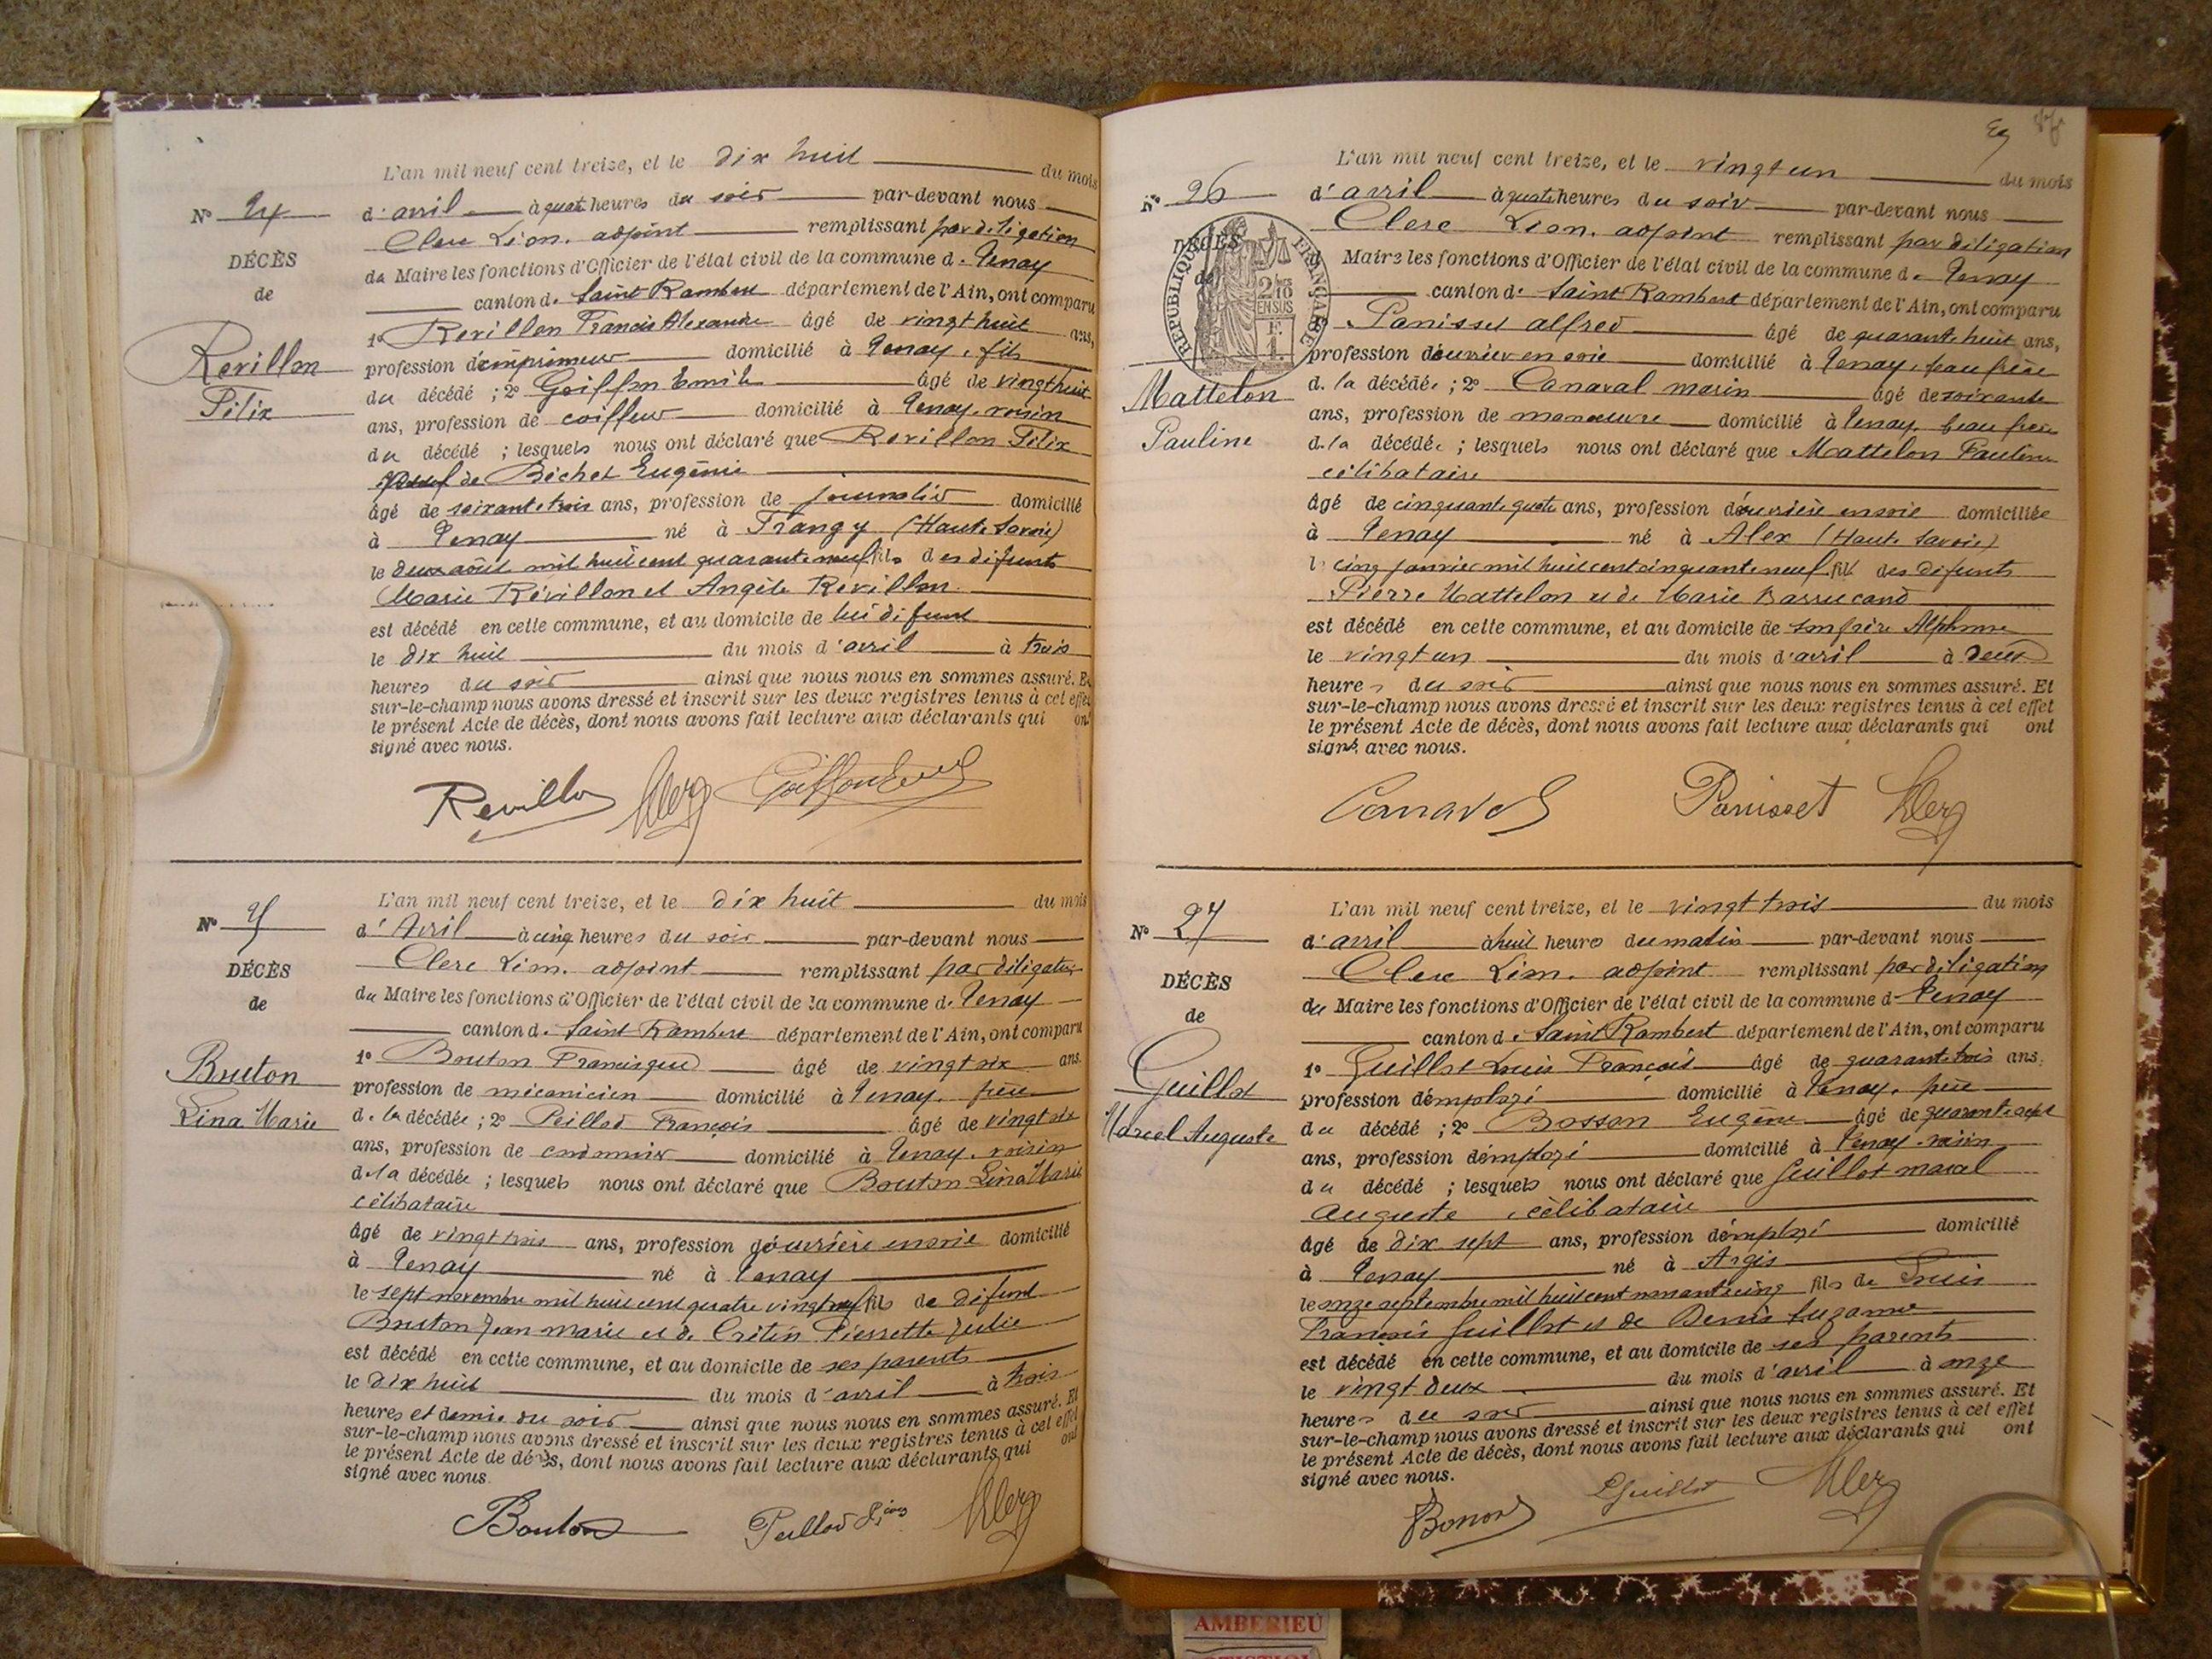 L'an mil neuf cent treize, et le dix huit du mois
N° 24
d'avril à quatre heures du soir par-devant nous
Clerc Léon, adjoint remplissant par délégation
DÉCÈS
du Maire les fonctions d'Officier de l'état civil de la commune de Tenay
de
canton de Saint Rambert département de l'Ain, ont comparu
1° Revillon Francis Alexandre âgé de vingt huit ans,
Revillon
profession d'imprimeur domicilié à Tenay, fils
Félix
du décédé ; 2° Goiffon Emile âgé de vingt huit
ans, profession de coiffeur domicilié à Tenay, voisin
du décédé ; lesquels nous ont déclaré que Revillon Félix
veuf de Béchet Eugénie
âgé de soixante trois ans, profession de journalier domicilié
à Tenay né à Frangy (Haute Savoie)
le deux août mil huit cent quarante neuf fils des défunts
Marie Révillon et Angèle Revillon
est décédé en cette commune, et au domicile de lui défunt
le dix huit du mois d'avril à trois
heures du soir ainsi que nous nous en sommes assuré. Et
sur-le-champ nous avons dressé et inscrit sur les deux registres tenus à cet effet
le présent Acte de décès, dont nous avons fait lecture aux déclarants qui ont
signé avec nous.
Revillon Clerc
L'an mil neuf cent treize, et le dix huit du mois
N° 25
d'Avril à cinq heures du soir par-devant nous
Clerc Léon, adjoint remplissant par délégation
DÉCÈS
du Maire les fonctions d'Officier de l'état civil de la commune de Tenay
de
canton de Saint Rambert département de l'Ain, ont comparu
1° Bouton Francisque âgé de vingt six ans.
Bouton
profession de mécanicien domicilié à Tenay, frère
Lina Marie
de la décédée ; 2° Peillod François âgé de vingt six
ans, profession de domicilié à Tenay, voisin
de la décédée ; lesquels nous ont déclaré que Bouton Lina Marie
célibataire
âgé de vingt trois ans, profession d'ouvrière en soie domicilié
à Tenay né à Tenay
le sept novembre mil huit cent quatre vingt neuf fils de défunt
Bouton Jean Marie et de Crétin Pierrette Julie
est décédé en cette commune, et au domicile de ses parents
le dix huit du mois d'avril à trois
heures et demie du soir ainsi que nous nous en sommes assuré. Et
sur-le-champ nous avons dressé et inscrit sur les deux registres tenus à cet effet
le présent Acte de décès, dont nous avons fait lecture aux déclarants qui ont
signé avec nous.
Bouton Peillod Clerc
L'an mil neuf cent treize, et le vingt un du mois
N° 26
d'avril à quatre heures du soir par-devant nous
Clerc Léon, adjoint remplissant par délégation
DÉCÈS
Maire les fonctions d'Officier de l'état civil de la commune de Tenay
de
RÉPUBLIQUE FRANÇAISE
canton de Saint Rambert département de l'Ain, ont comparu
Panisset Alfred âgé de quarante huit ans,
profession d'ouvrier en soie domicilié à Tenay, beau frère
Mattelon
de la décédée ; 2° Canaval Marin âgé de soixante
ans, profession de manœuvre domicilié à Tenay, beau frère
Pauline
de la décédée ; lesquels nous ont déclaré que Mattelon Pauline
célibataire
âgé de cinquante quatre ans, profession d'ouvrière en soie domiciliée
à Tenay né à Alex (Haute Savoie)
le cinq janvier mil huit cent cinquante neuf fille des défunts
Pierre Mattelon et de Marie Barrucand
est décédé en cette commune, et au domicile de son frère Alphonse
le vingt un du mois d'avril à deux
heures du soir ainsi que nous nous en sommes assuré. Et
sur-le-champ nous avons dressé et inscrit sur les deux registres tenus à cet effet
le présent Acte de décès, dont nous avons fait lecture aux déclarants qui ont
signé avec nous.
Canaval Panisset Clerc
L'an mil neuf cent treize, et le vingt trois du mois
N° 27
d'avril à huit heures du matin par-devant nous
Clerc Léon, adjoint remplissant par délégation
DÉCÈS
du Maire les fonctions d'Officier de l'état civil de la commune de Tenay
de
canton de Saint Rambert département de l'Ain, ont comparu
1° Guillot Louis François âgé de quarante trois ans.
Guillot
profession d'employé domicilié à Tenay, père
Marcel Auguste
du décédé ; 2° Bosson Eugène âgé de quarante sept
ans, profession d'employé domicilié à Tenay, voisin
du décédé ; lesquels nous ont déclaré que Guillot Marcel
Auguste, célibataire
âgé de dix sept ans, profession d'employé domicilié
à Tenay né à Argis
le onze septembre mil huit cent nonante cinq fils de Louis
François Guillot et de Denis Suzanne
est décédé en cette commune, et au domicile de ses parents
le vingt deux du mois d'avril à onze
heures du soir ainsi que nous nous en sommes assuré. Et
sur-le-champ nous avons dressé et inscrit sur les deux registres tenus à cet effet
le présent Acte de décès, dont nous avons fait lecture aux déclarants qui ont
signé avec nous.
Bosson Guillot Clerc
AMBERIEU